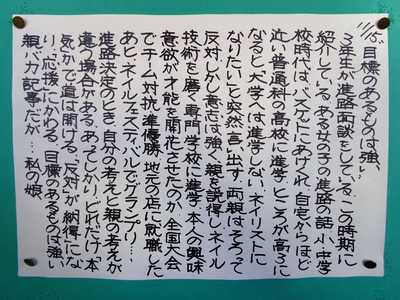 11/15 目標のあるものは強い
3年生が進路面談をしている。この時期に
紹介している、ある女の子の進路の話。小、中学
校時代は、バスケにあけくれ、自宅からほど
近い普通科の高校に進学。ところが高3に
なると、大学へは進学しない。ネイリストに
なりたいと突然言い出す。両親はそろって
反対。しかし意志は強く、親を説得し、ネイル
技術を磨く専門学校に進学。本人の興味
意欲が才能を開花させたのか、全国大会
でチーム対抗準優勝、地元の店に就職した
あと、ネイルフェスティバルでグランプリ…。
進路決定のとき、自分の考えと親の考えが
違う場合がある。あってしかり。どれだけ「本
気」かで道は開ける。「反対」が「納得」にな
り「応援」にかわる。目標のあるものは強い
親バカ記事だが…私の娘。